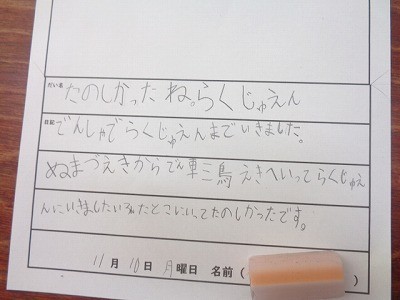 だい名
たのしかったね。らくじゅえん
でんしゃでらくじゅえんまでいきました。
ぬまづえきからでん車三鳥えきへいってらくじゅえ
んにいきました
とこにいてたのしかったです。
11月10日月曜日 名前(